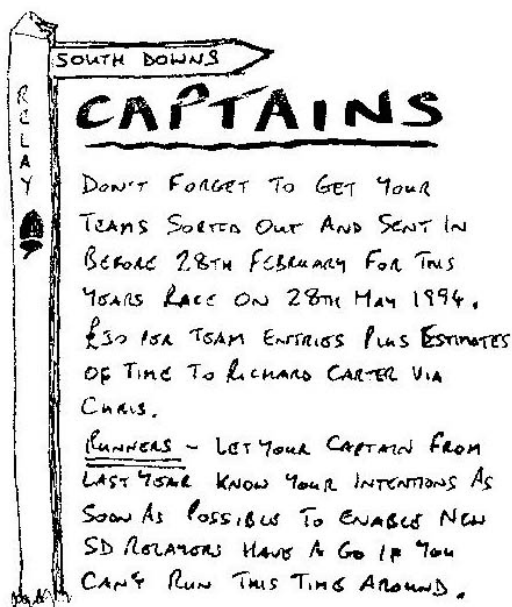 SOUTH DOWNS
RELAY
CAPTAINS
DON'T FORGET TO GET YOUR
TEAMS SORTED OUT AND SENT IN
BEFORE 28TH FEBRUARY FOR THIS
YEARS RACE ON 28TH MAY 1994.
£30 PER TEAM ENTRIES PLUS ESTIMATES
OF TIME TO RICHARD CARTER VIA
CHRIS.
RUNNERS - LET YOUR CAPTAIN FROM
LAST YEAR KNOW YOUR INTENTIONS AS
SOON AS POSSIBLE TO ENABLE NEW
SD RELAYERS HAVE A GO IF YOU
CAN'T RUN THIS TIME AROUND.